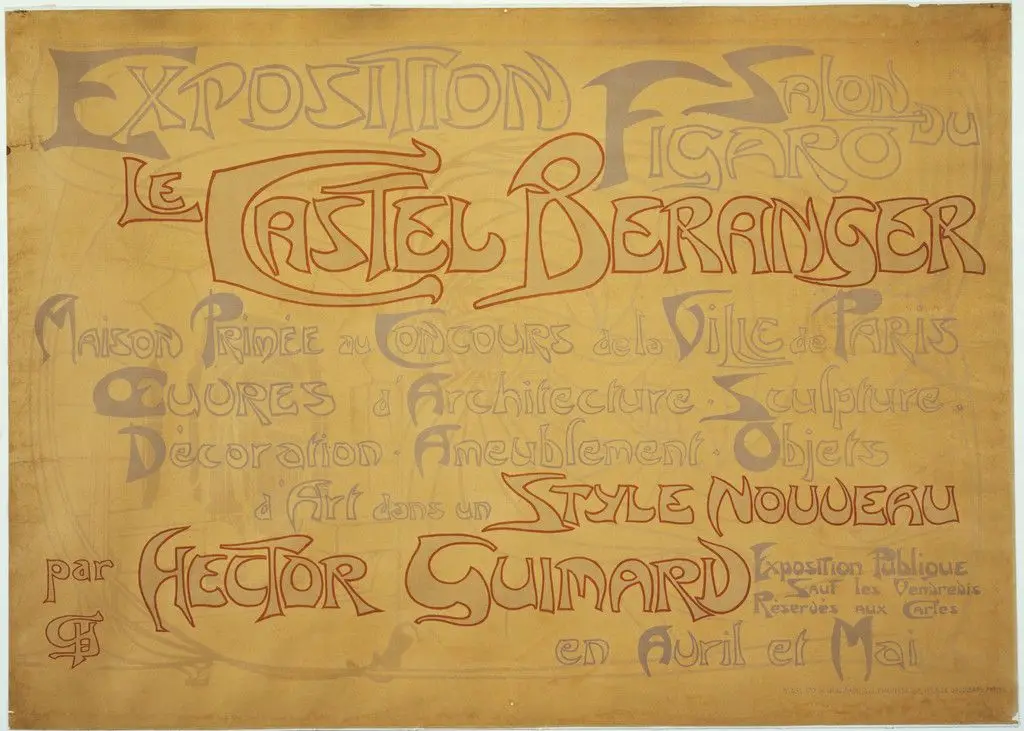 EXPOSITION SALON DU FIGARO
LE CASTEL BERANGER
MAISON PRIMÉE au CONCOURS de la VILLE de PARIS
ŒUVRES d'Architecture . Sculpture .
Décoration . Ameublement . Objets
d'Art dans un STYLE NOUVEAU
par HECTOR GUIMARD
EXPOSITION PUBLIQUE
SAUF les Vendredis
Réservés aux Cartes
en Avril et Mai